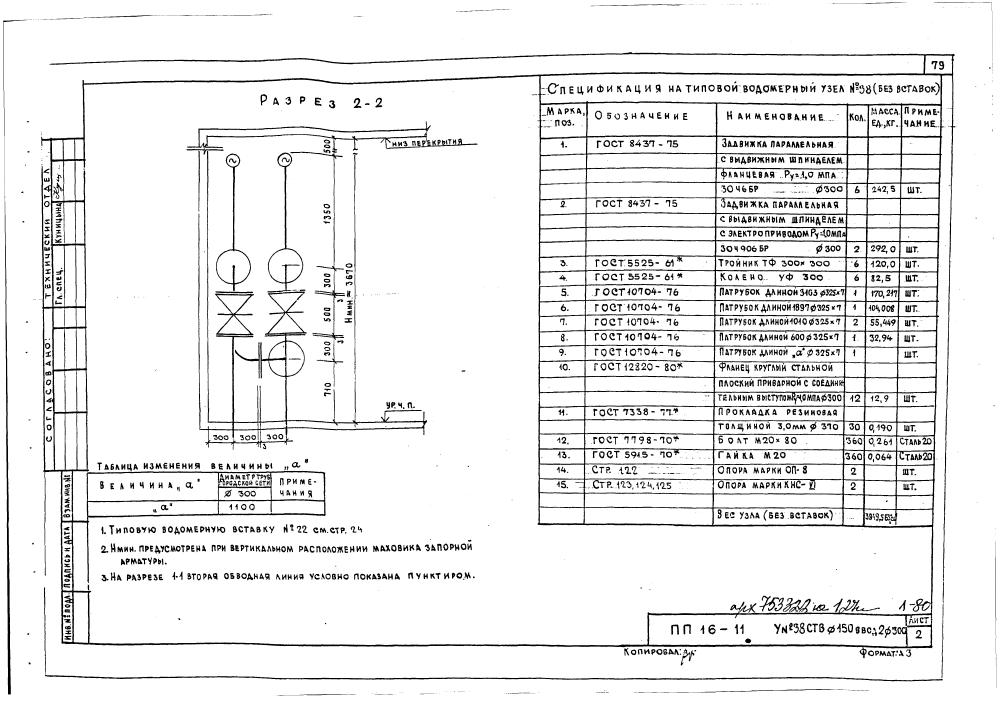 79
Разрез 2-2
500
низ перекрытия
1350
300
Hмин = 3670
3
500
3
300
710
ур. ч. п.
300 300 300
3
Таблица изменения величины „а"
Величина „а" Диаметр труб городской сети Примечания
ø 300
„а" 1100
1. Типовую водомерную вставку №22 см. стр. 24
2. Hмин. предусмотрена при вертикальном расположении маховика запорной
арматуры.
3. На разрезе 1-1 вторая обводная линия условно показана пунктиром.
Спецификация на типовой водомерный узел №38 (без вставок)
Марка, поз. Обозначение Наименование Кол. Масса ед., кг. Примечание
1. ГОСТ 8437-75 Задвижка параллельная
с выдвижным шпинделем
фланцевая Ру=1,0 мпа
30ч6бр ø300 6 242,5 шт.
2. ГОСТ 8437-75 Задвижка параллельная
с выдвижным шпинделем
с электроприводом Ру=1,0мпа
30ч906бр ø300 2 292,0 шт.
3. ГОСТ 5525-61* Тройник ТФ 300×300 6 120,0 шт.
4. ГОСТ 5525-61* Колено УФ 300 6 82,5 шт.
5. ГОСТ 10704-76 Патрубок длиной 3103 ø325×7 1 170,217 шт.
6. ГОСТ 10704-76 Патрубок длиной 1897 ø325×7 1 104,008 шт.
7. ГОСТ 10704-76 Патрубок длиной 1010 ø325×7 2 55,449 шт.
8. ГОСТ 10704-76 Патрубок длиной 600 ø325×7 1 32,94 шт.
9. ГОСТ 10704-76 Патрубок длиной „а" ø325×7 1 шт.
10. ГОСТ 12820-80* Фланец круглый стальной
плоский приварной с соедини-
тельным выступом ø300 12 12,9 шт.
11. ГОСТ 7338-77* Прокладка резиновая
толщиной 3,0мм ø 370 30 0,190 шт.
12. ГОСТ 7798-70* Болт М20×80 360 0,261 Сталь20
13. ГОСТ 5915-70* Гайка М20 360 0,064 Сталь20
14. Стр. 122 Опора марки ОП-8 2 шт.
15. Стр. 123, 124, 125 Опора марки КНС-VI 2 шт.
Вес узла (без вставок)
Технический отдел
Гл. спец. Куницына
Согласовано:
Инв. № подл. Подпись и дата Взам. инв. №
1-80
ПП 16-11 У№38СТВ ø150 ввод 2ø300 Лист 2
Копировал:
Формат: А3